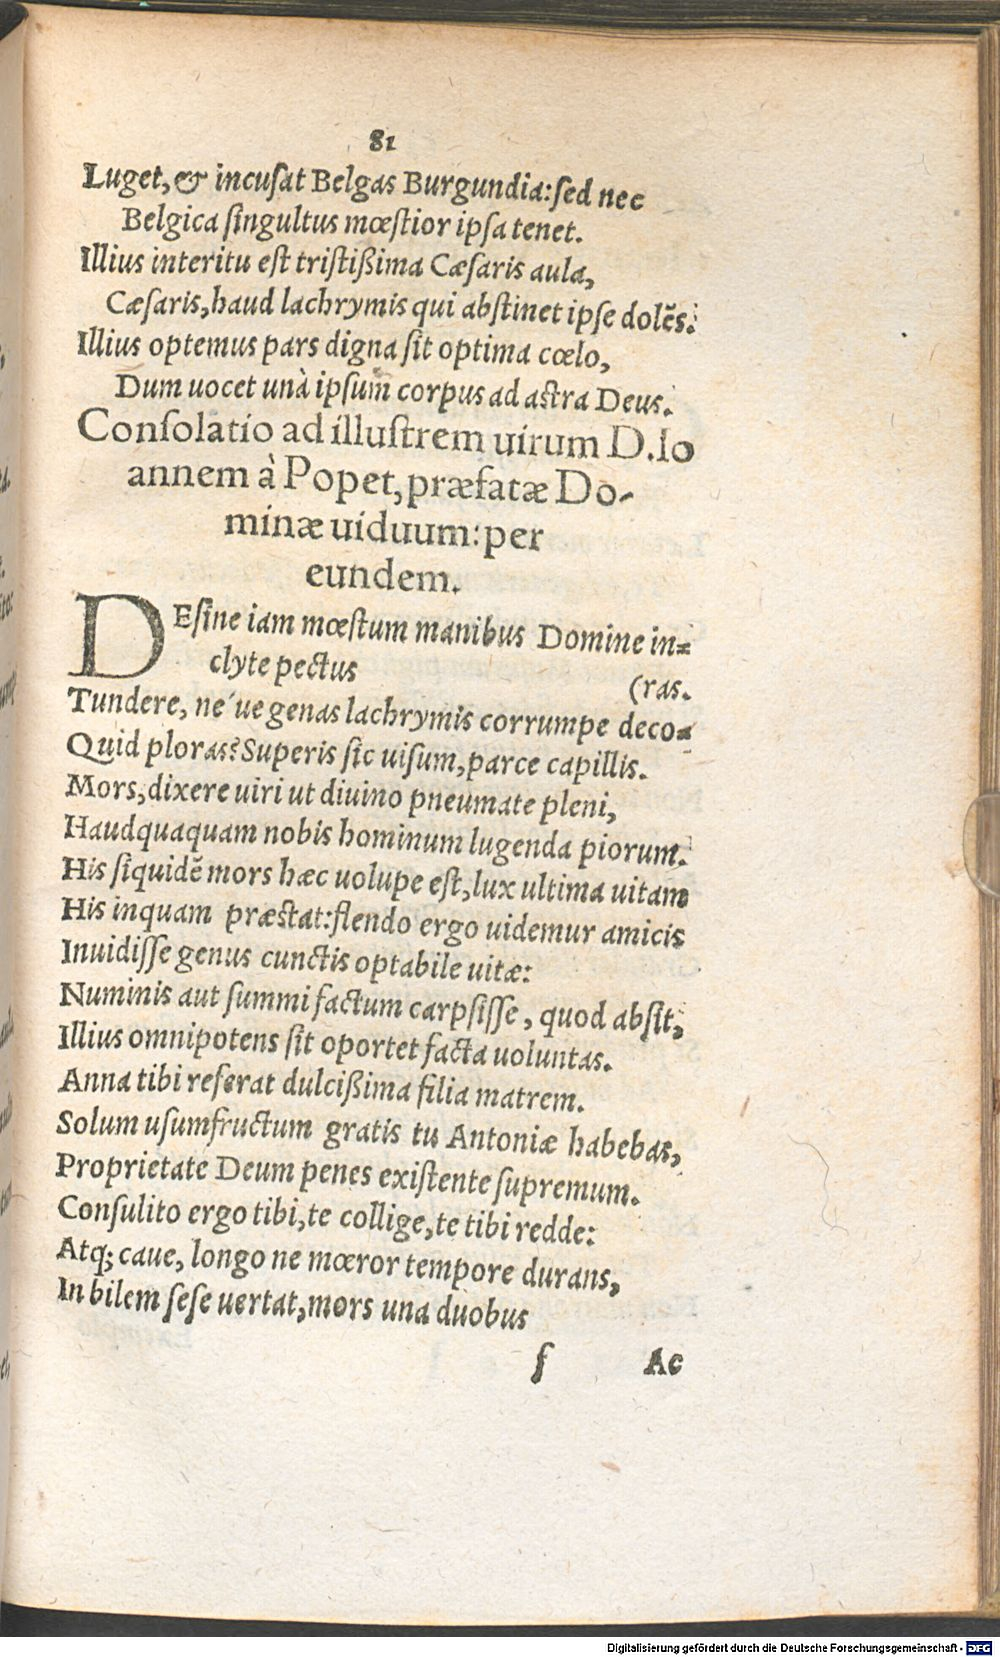 81
Luget, & incusat Belgas Burgundia: sed nec
Belgica singultus mœstior ipsa tenet.
Illius interitu est tristißima Cæsaris aula,
Cæsaris, haud lachrymis qui abstinet ipse dolẽs.
Illius optemus pars digna sit optima cœlo,
Dum uocet unà ipsum corpus ad astra Deus.
Consolatio ad illustrem uirum D. Io
annem à Popet, præfatæ Do-
minæ uiduum: per
eundem.
DEsine iam mœstum manibus Domine in-
clyte pectus
(ras.
Tundere, ne´ue genas lachrymis corrumpe deco-
Quid ploras? Superis sic uisum, parce capillis.
Mors, dixere uiri ut diuino pneumate pleni,
Haudquaquam nobis hominum lugenda piorum.
His siquidẽ mors hæc uolupe est, lux ultima uitam
His inquam præstat: flendo ergo uidemur amicis
Inuidisse genus cunctis optabile uitæ:
Numinis aut summi factum carpsisse, quod absit,
Illius omnipotens sit oportet facta uoluntas.
Anna tibi referat dulcißima filia matrem.
Solum usumfructum gratis tu Antoniæ habebas,
Proprietate Deum penes existente supremum.
Consulito ergo tibi, te collige, te tibi redde:
Atq; caue, longo ne mœror tempore durans,
In bilem sese uertat, mors una duobus
f Ac
Digitalisierung gefördert durch die Deutsche Forschungsgemeinschaft - DFG